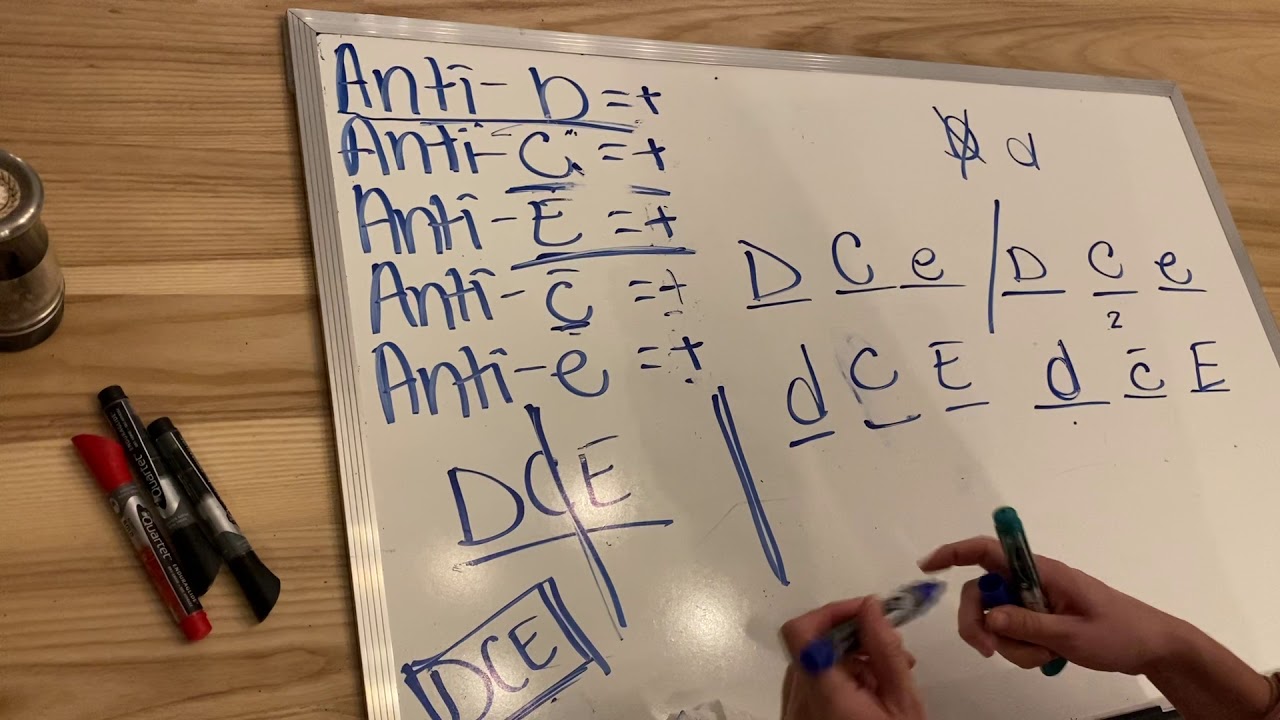 Anti-D=+
Anti-C=+
Anti-E=+
Anti-c̄=+
Anti-e=+
DCE
DCE
D d
D C e | D C e
2
d C E d c̄ E
Quartet
Quartet